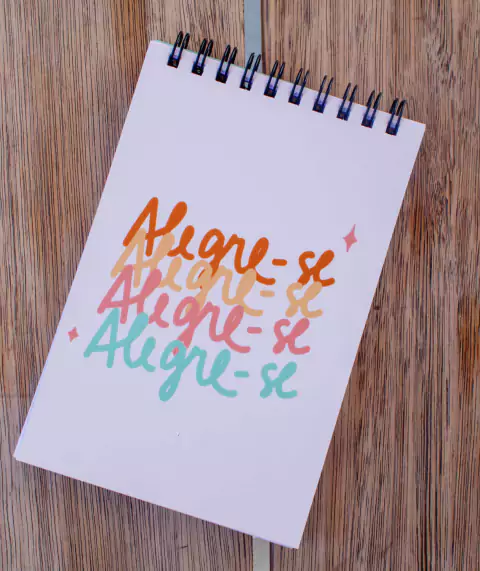 Alegre-se
Alegre-se
Alegre-se
Alegre-se